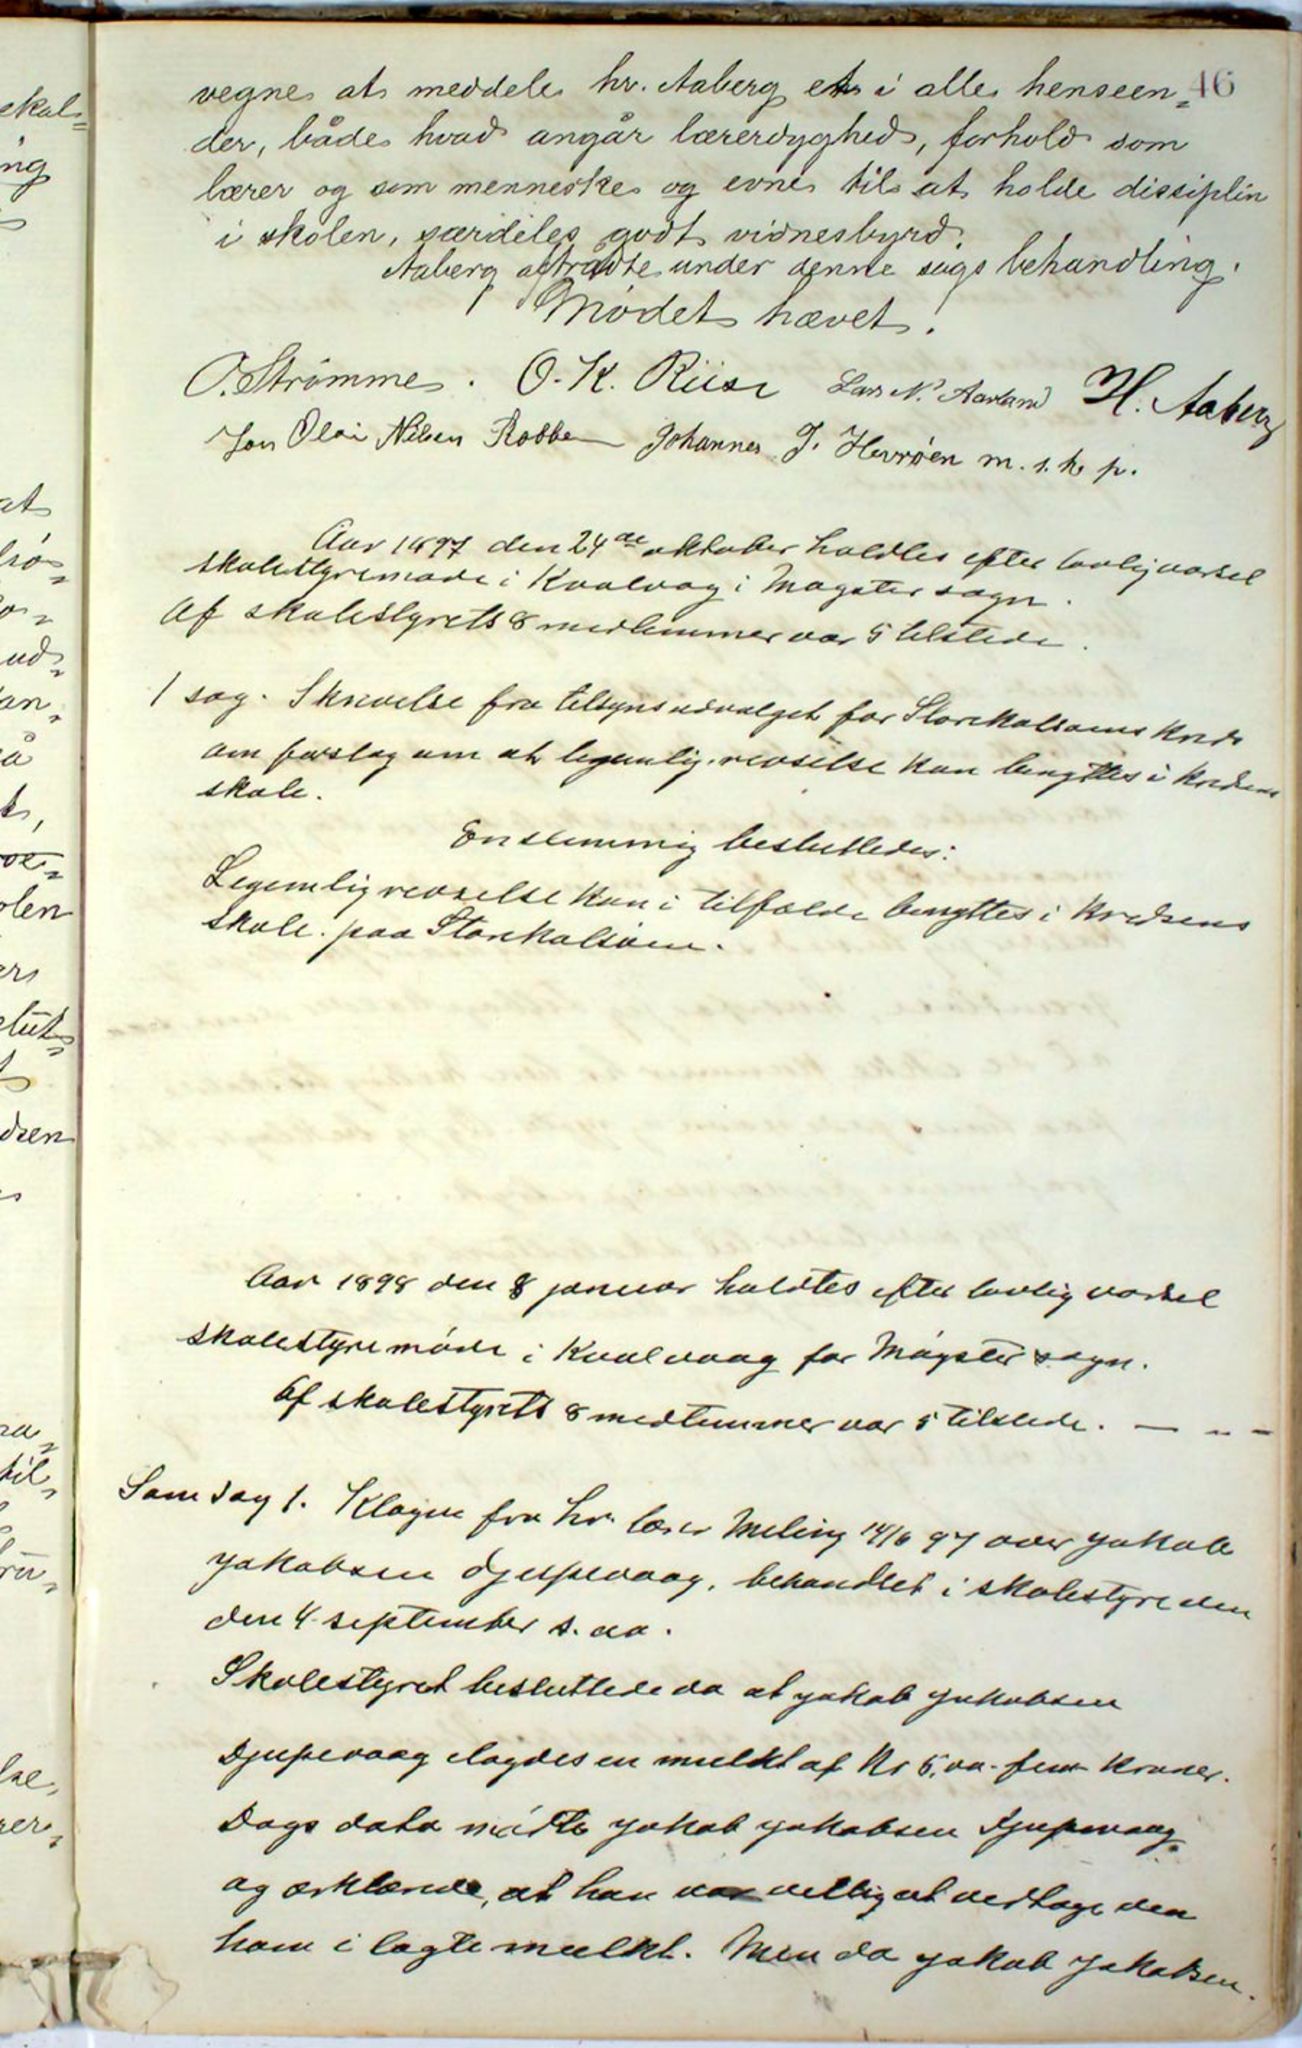 46
vegne at meddele hr. Aaberg et i alle henseen-
der, både hvad angår lærerdyghed, forhold som
lærer og som menneske og evne til at holde dissiplin
i skolen, særdeles godt vidnesbyrd.
Aaberg aftrådte under denne sags behandling.
Mødet hævet.
O. Strömme. O. K. Riise Lars N. Aarland H. Aaberg
Jon Olai Nilsen Rabben Johannes J. Hevrøen m. s. h. p.
Aar 1897 den 24de oktober holdtes efter lovlig varsel
skolestyremøde i Kvalvaag i Møgster sogn.
Af skolestyrets 8 medlemmer var 5 tilstede.
1 sag. Skrivelse fra tilsynsudvalget for Storekalsøens kreds
om forslag um at legemlig revselse kan benyttes i kredsens
skole.
Enstemmig besluttedes:
Legemlig revselse kan i tilfælde benyttes i kredsens
skole paa Storekalsøen.
Aar 1898 den 8 januar holdtes efter lovlig varsel
skolestyremøde i Kvalvaag for Møgster sogn.
Af skolestyrets 8 medlemmer var 5 tilstede. — - -
Som sag 1. Klagen fra hr. lærer Meling 14/6 97 over Jakob
Jakobsen Djupevaag, behandlet i skolestyre den
den 4 september s. aa.
Skolestyret besluttede da at Jakob Jakobsen
Djupevaag ilagdes en mulkt af Kr 5,00 - fem Kroner.
Dags dato mødte Jakob Jakobsen Djupevaag
og ærklærede, at han var villig at vedtage den
ham i lagte mulkt. Men da Jakob Jakobsen.